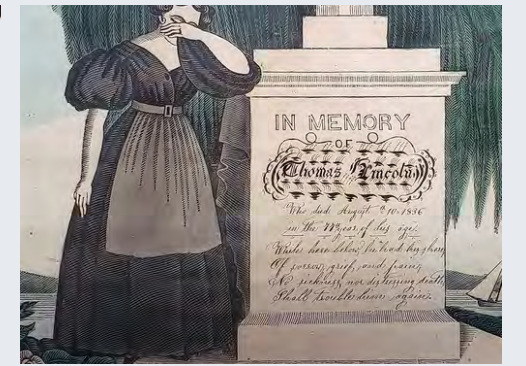 IN MEMORY
OF
Thomas Lincoln
Who died August 10. 1836
in the year of his age.
While here below, he had his share
Of sorrow, grief, and pains,
No sickness, nor distressing death,
Shall trouble him again.